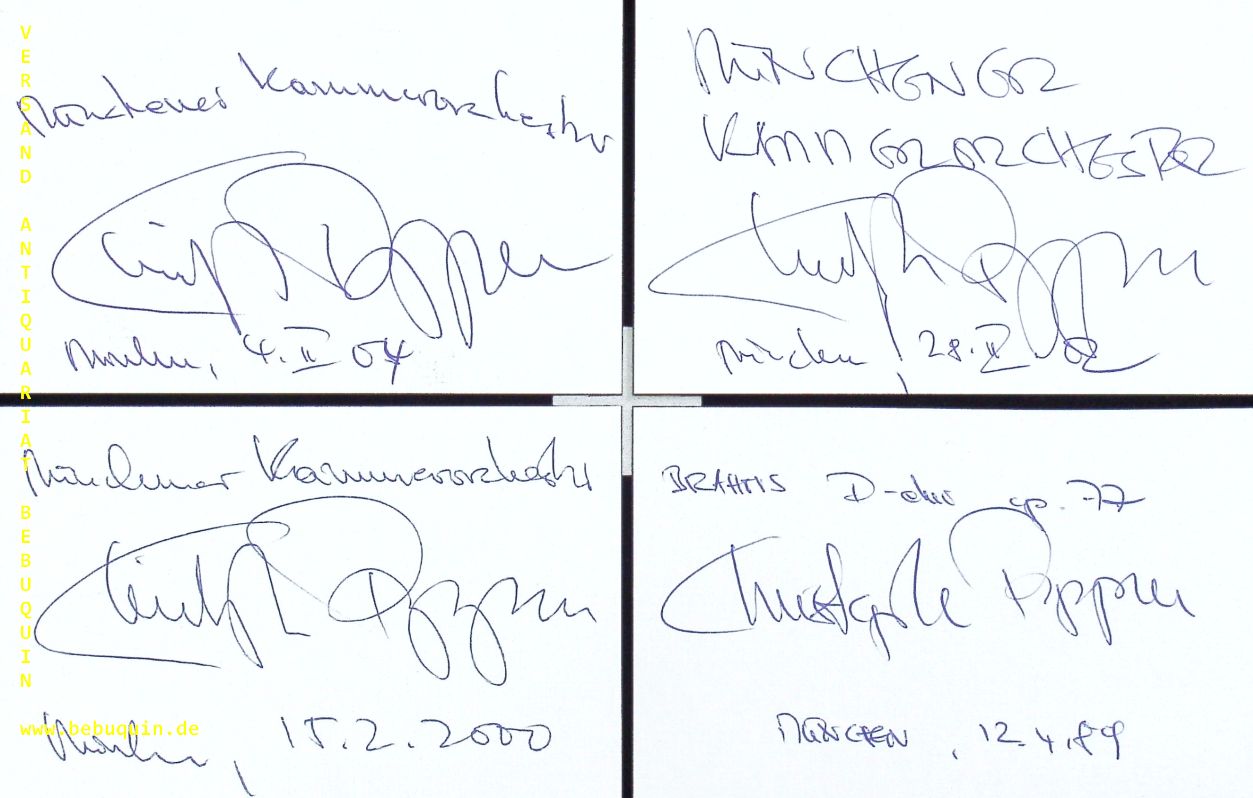 VERSAND ANTIQUARIAT BEBUQUIN
www.bebuquin.de
Münchener Kammerorchester
Christoph Poppen
München, 4. II 04
MÜNCHENER
KAMMERORCHESTER
Christoph Poppen
München, 28. II 02
Münchener Kammerorchester
Christoph Poppen
München, 15.2.2000
BRAHMS D-dur op. 77
Christoph Poppen
MÜNCHEN, 12.4.89